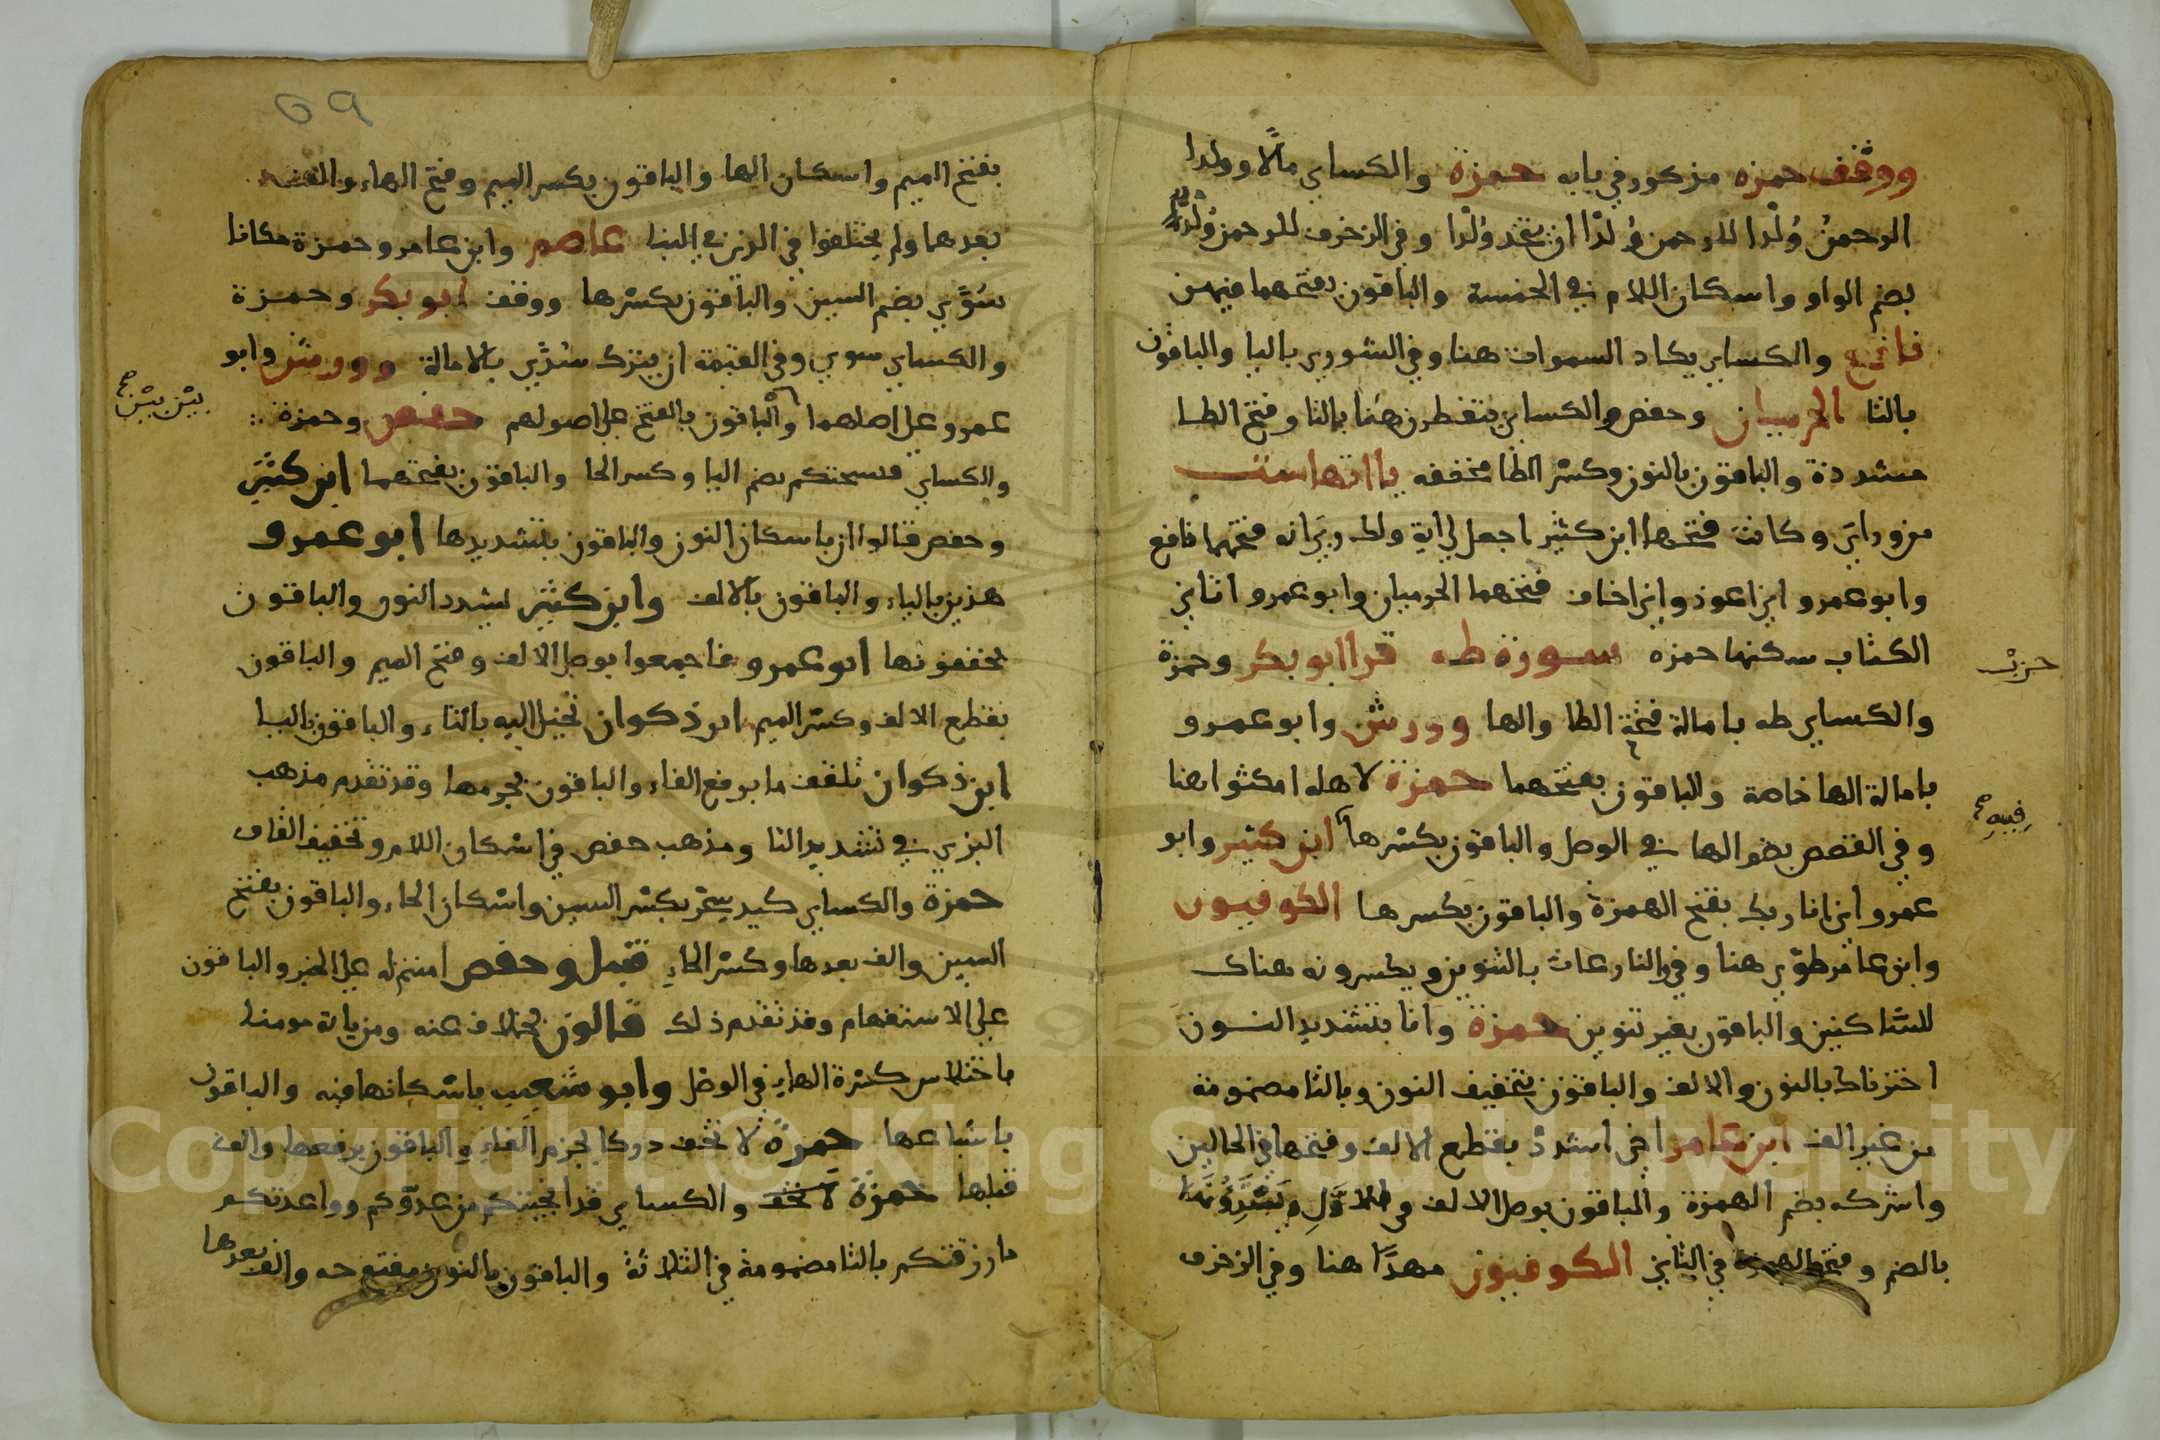 ووقف حمزه مذكور في بابه حمزة والكساي مالًا وولدا
الرحمن وُلْدا للرحمن وُلْدًا ان يتخذ وُلْدا وفي الزخرف للرحمن وُلْدٌ
بضم الواو واسكان اللام في الخمسة والباقون بفتحهما فيهن
نافع والكساي يكاد السموات هنا وفي الشوري باليا والباقون
بالتا الحرميان وحفص والكساي يتفطرن هنا بالتا وفتح الطا
مشددة والباقون بالنون وكسْر الطا مخففه ياءاتها ست
من وراءي وكانت فتحها ابن كثير اجعل لي اية ولك ربي انه فتحهما نافع
وابو عمرو اني اعوذ واني اخاف فتحهما الحرميان وابو عمرو اتاني
الكتاب سكنها حمزه سورة طه قرا ابو بكر وحمزة
حزب
والكساي طه بامالة فتحة الطا والها وورش وابو عمرو
بامالة الها خاصة والباقون بفتحهما حمزة لاهله امكثوا هنا
وفي القصص بضم الها في الوصل والباقون بكسْرها ابن كثير وابو
فيه صح
عمرو اني انا ربك بفتح الهمزة والباقون بكسرها الكوفيون
وابن عامر طوًي هنا وفي والنازعات بالتنوين ويكسرونه هناك
للساكنين والباقون بغير تنوين حمزة وانا بتشديد النون
اخترناك بالنون والالف والباقون بتخفيف النون وبالتا مضمومة
من غير الف ابن عامر اخي اشدد بقطع الالف وفتحها في الحالين
واشركه بضم الهمزة والباقون بوصل الالف في الاول
بالضم وفتح الهمزة في الثاني الكوفيون مهدًا هنا وفي الزخرف
69
بفتح الميم واسكان الها والباقون بكسر الميم وفتح الهاء والف
بعدهما ولم يختلفوا في الذي في النبا عاصم وابن عامر وحمزة مكانا
سُوًي بضم السين والباقون بكسْرها ووقف ابو بكر وحمزة
والكساي سوي وفي القيمة ان يترك سُدًي بالامالة وورش وابو
عمرو علي اصلهما والباقون بالفتح علي اصولهم حفص وحمزة
بيْن بيْن صح
والكساي فيسحتكم بضم اليا وكسر الحا والباقون بفتحهما ابن كثير
وحفص قالوا ان باسكان النون والباقون بتشديدها ابو عمرو
هذين بالياء والباقون بالالف وابن كثير يشدد النون والباقون
يخففونها ابو عمرو فاجمعوا بوصل الالف وفتح الميم والباقون
بقطع الالف وكسْر الميم ابن ذكوان تخيل اليه بالتاء والباقون باليا
ابن ذكوان تلقف ما برفع الفاء والباقون بجزمها وقد تقدم مذهب
البزي في تشديد التا ومذهب حفص في اسْكان اللام وتخفيف القاف
حمزة والكساي كيد سحْر بكسْر السين واسْكان الحاء والباقون بفتح
السين والف بعدها وكسْر الحاءِ قنبل وحفص امنتم له علي الخبر والباقون
علي الاستفهام وقد تقدم ذلك قالون بخلاف عنه ومن ياته مومنا
باختلاس كسْرة الهاء في الوصْل وابو شعيب باسْكانها فيه والباقون
باشباعها حمزة لا تخف دركا بجزم الفاءِ والباقون برفعها والف
قبلها حمزة والكساي قد انجيتكم من عدوّكم وواعدتكم
ما رزقتكم بالتا مضمومة في الثلاثة والباقون بالنون مفتوحه والف بعدها